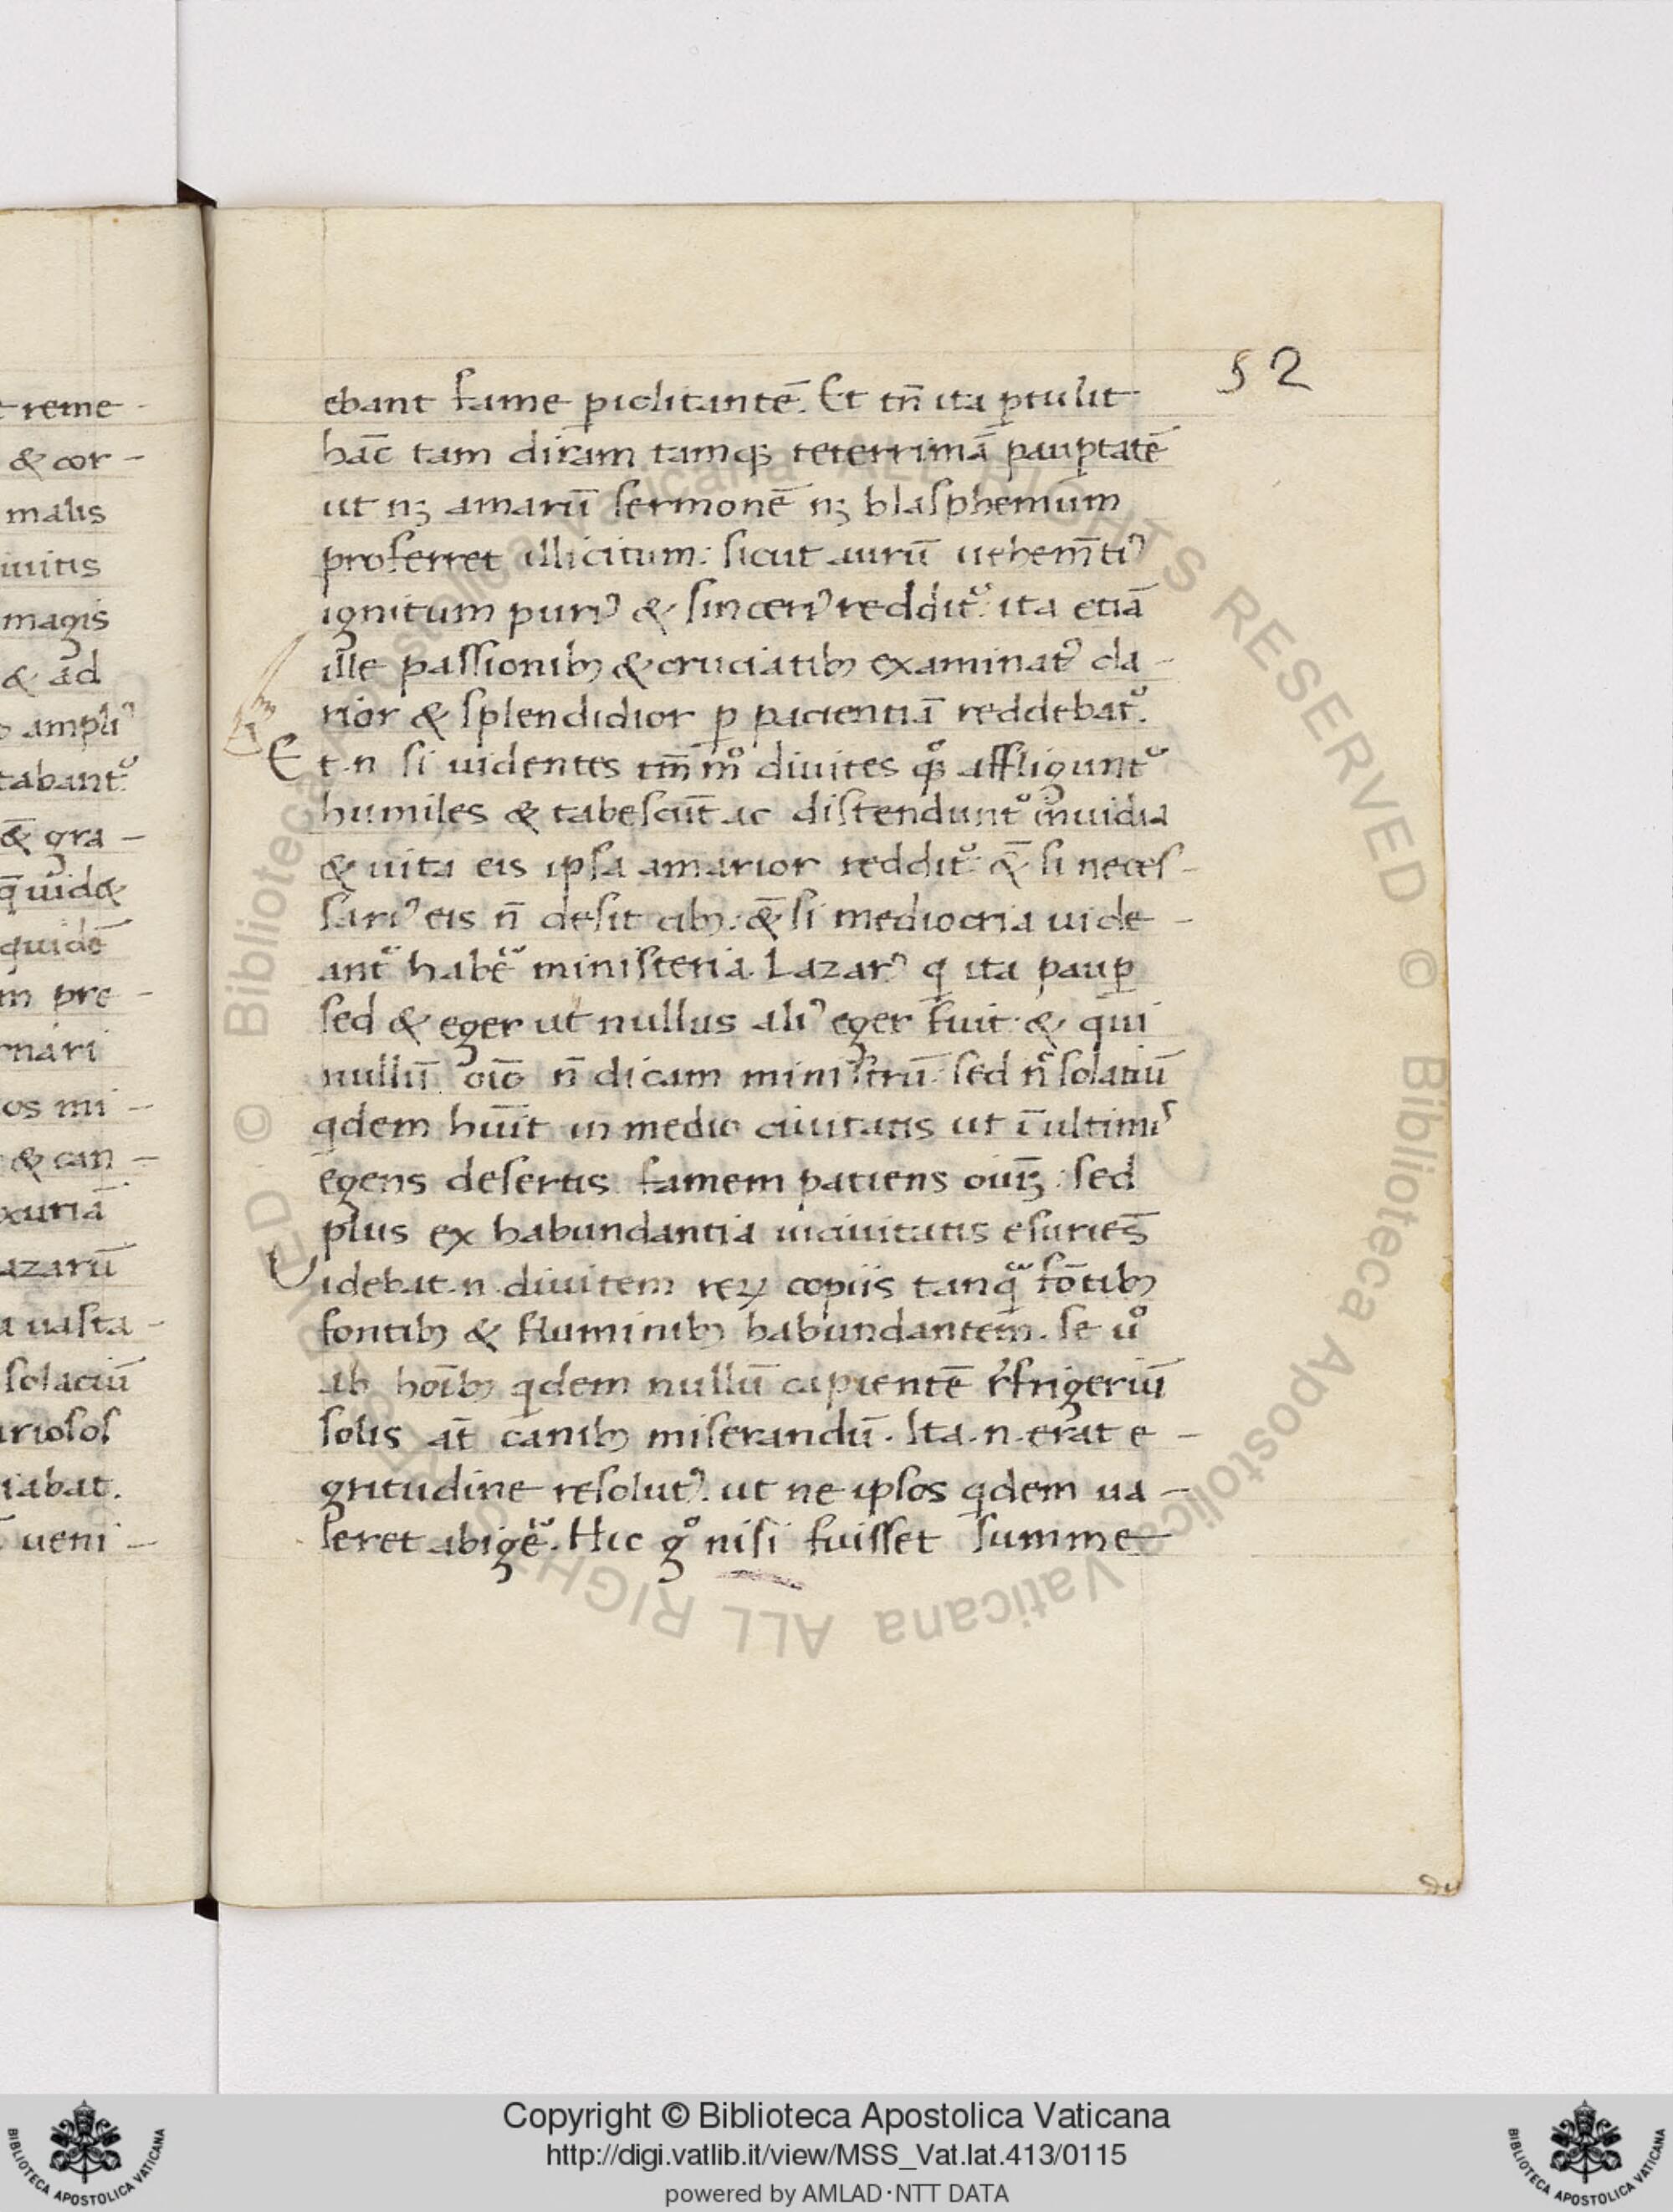 t reme-
& cor-
malis
iuitis
magis
& ad
ampliꝰ
tabantᷣ
&̄ gra-
q̄ uid&
quidē
m pre-
rnari
os mi-
& can-
xuriā
azarū
a uasta-
solaciū
ariosos
iabat.
ueni-
52
ebant fame ꝑiclitantē. Et tn̄ ita ꝑtulit
hāc tam diram tamqꝫ teterrimā pauꝑtatē
ut nꝫ amarū sermonē nꝫ blasphemum
proferret illicitum: sicut aurū uehem̄tiꝰ
ignitum puriꝰ & sinceriꝰ redditᷣ: ita etiā
ille passionibꝫ & cruciatibꝫ examinatꝰ cla-
rior & splendidior ꝑ pacientiā reddebatᷣ.
Et .n. si uidentes tm̄mͦ diuites qͦsꝫ affliguntᷣ
humiles & tabescūt ac distenduntᷣ inuidia
& uita eis ipsa amarior redditᷣ: &̄ si neces-
sariꝰ eis n̄ desit cibꝫ: &̄ si mediocria uide-
antᷣ habēͬ ministeria. Lazarꝰ q̇ ita pauꝑ
sed & eger ut nullus aliꝰ eger fuit: & qui
nullū oīo n̄ dicam ministrū: sed nͨ solatiū
q̇dem hūit in medio ciuitatis ut ī ultimis
egens desertis famem patiens ouiꝫ: sed
plus ex habundantia in ciuitatis esuriēs
Uidebat .n. diuitem reꝝ copiis tanqᷓ fōtibꝫ
fontibꝫ & fluminibꝫ habundantem. se uͦ
ab hoībꝫ q̇dem nullū capientē rͤfrigeriū
solis aūt canibꝫ miserandū. Ita .n. erat e-
gritudine resolutꝰ. ut ne ipsos q̇dem ua-
leret abigēͬ. Hic gͦ nisi fuisset summe
Copyright © Biblioteca Apostolica Vaticana
http://digi.vatlib.it/view/MSS_Vat.lat.413/0115
powered by AMLAD·NTT DATA